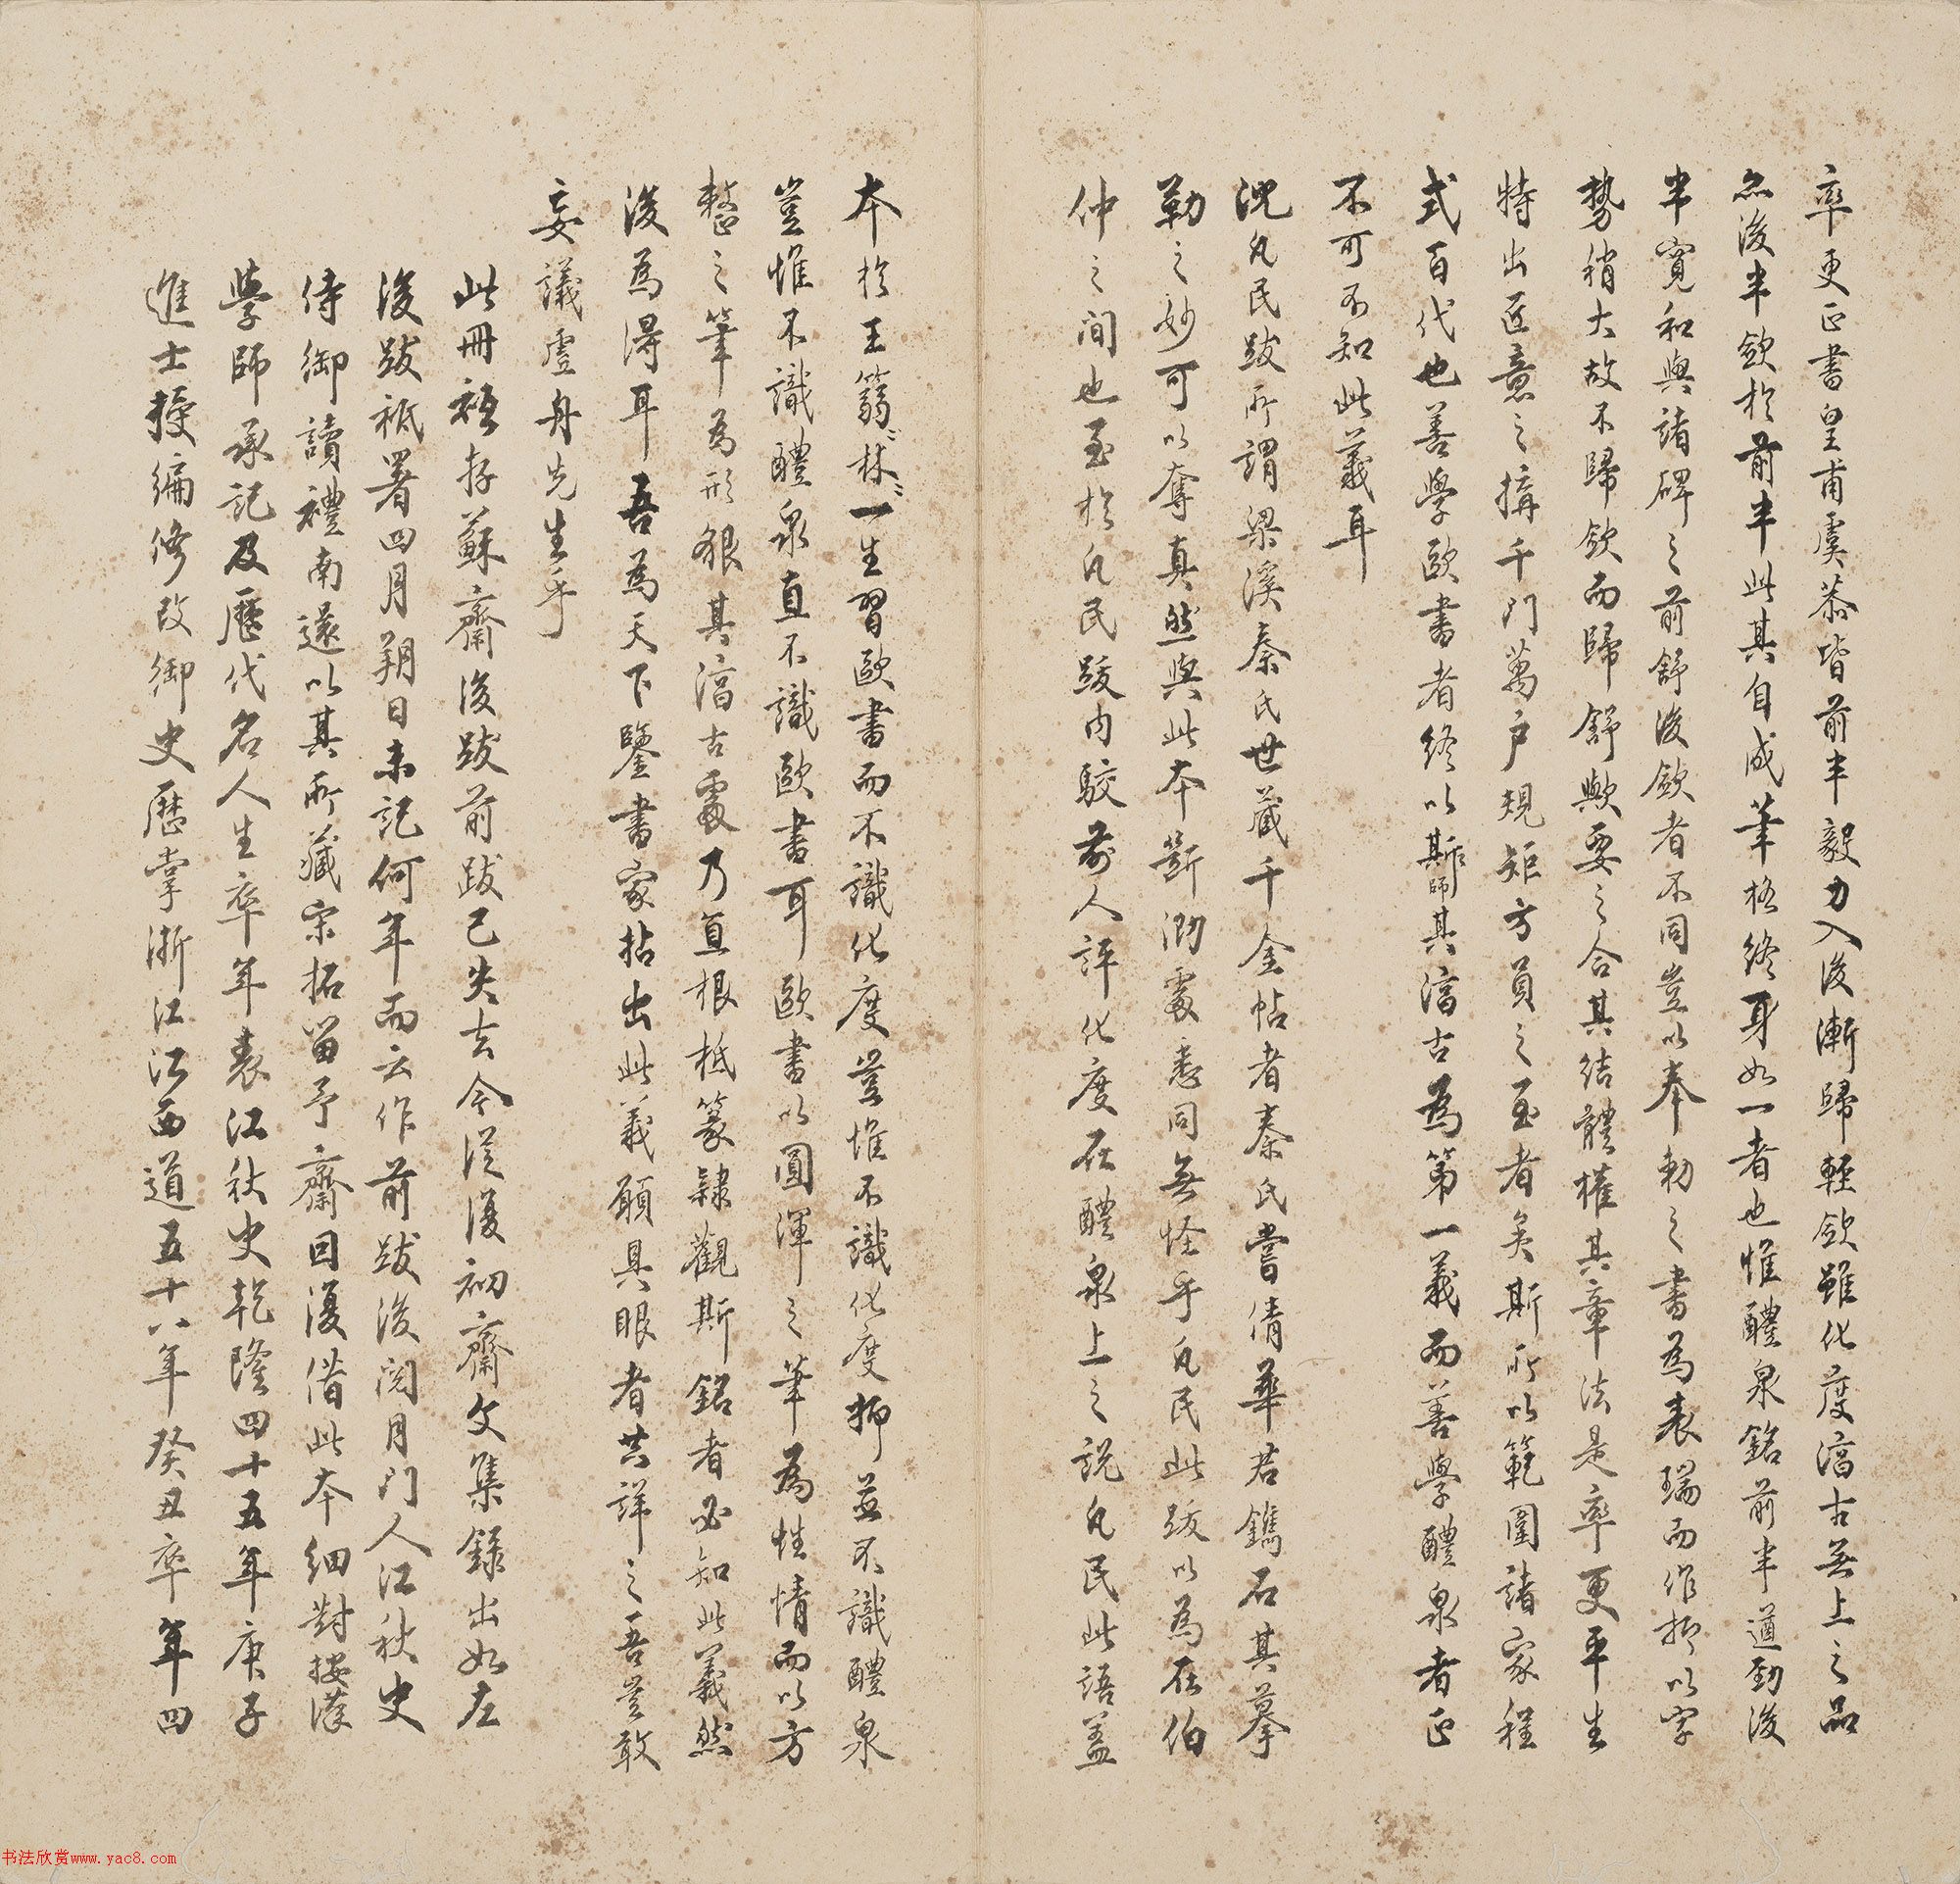 率更正書皇甫虞恭皆前半毅力入後漸歸輕斂雖化度渟古無上之品
亦後半斂於前半此其自成筆格終身如一者也惟醴泉銘前半遒勁後
半寬和與諸碑之前舒後斂者不同豈以奉勅之書為表瑞而作抑以字
勢稍大故不歸斂而歸舒歟要之合其結體權其章法是率更平生
特出匠意之搆千門萬戶規矩方員之至者矣斯所以範圍諸家程
式百代也善學歐書者終以斯師其渟古為第一義而善學醴泉者正
不可不知此義耳
況凡民跋所謂梁溪秦氏世藏千金帖者秦氏嘗倩華君鐫石其摹
勒之妙可以奪真然與此本斷泐處悉同無怪乎凡民此跋以為在伯
仲之間也至於凡民跋內駁前人評化度在醴泉上之說凡民此語蓋
本於王篛林林一生習歐書而不識化度豈惟不識化度抑並不識醴泉
豈惟不識醴泉直不識歐書耳歐書以圓渾之筆為性情而以方
整之筆為形貌其渟古處乃直根柢篆隸觀斯銘者必知此義然
後為得耳吾為天下鑒書家拈出此義願具眼者共詳之吾豈敢
妄議虛舟先生乎
此冊種存蘇齋後跋前跋已失去今從復初齋文集錄出如左
後跋祗署四月朔日未記何年而云作前跋後閱月門人江秋史
侍御讀禮南還以其所藏宋拓留予齋因復借此本細對按漢
學師承記及歷代名人生卒年表江秋史乾隆四十五年庚子
進士授編修改御史歷掌浙江江西道五十八年癸丑卒年四
书法欣赏www.yac8.com